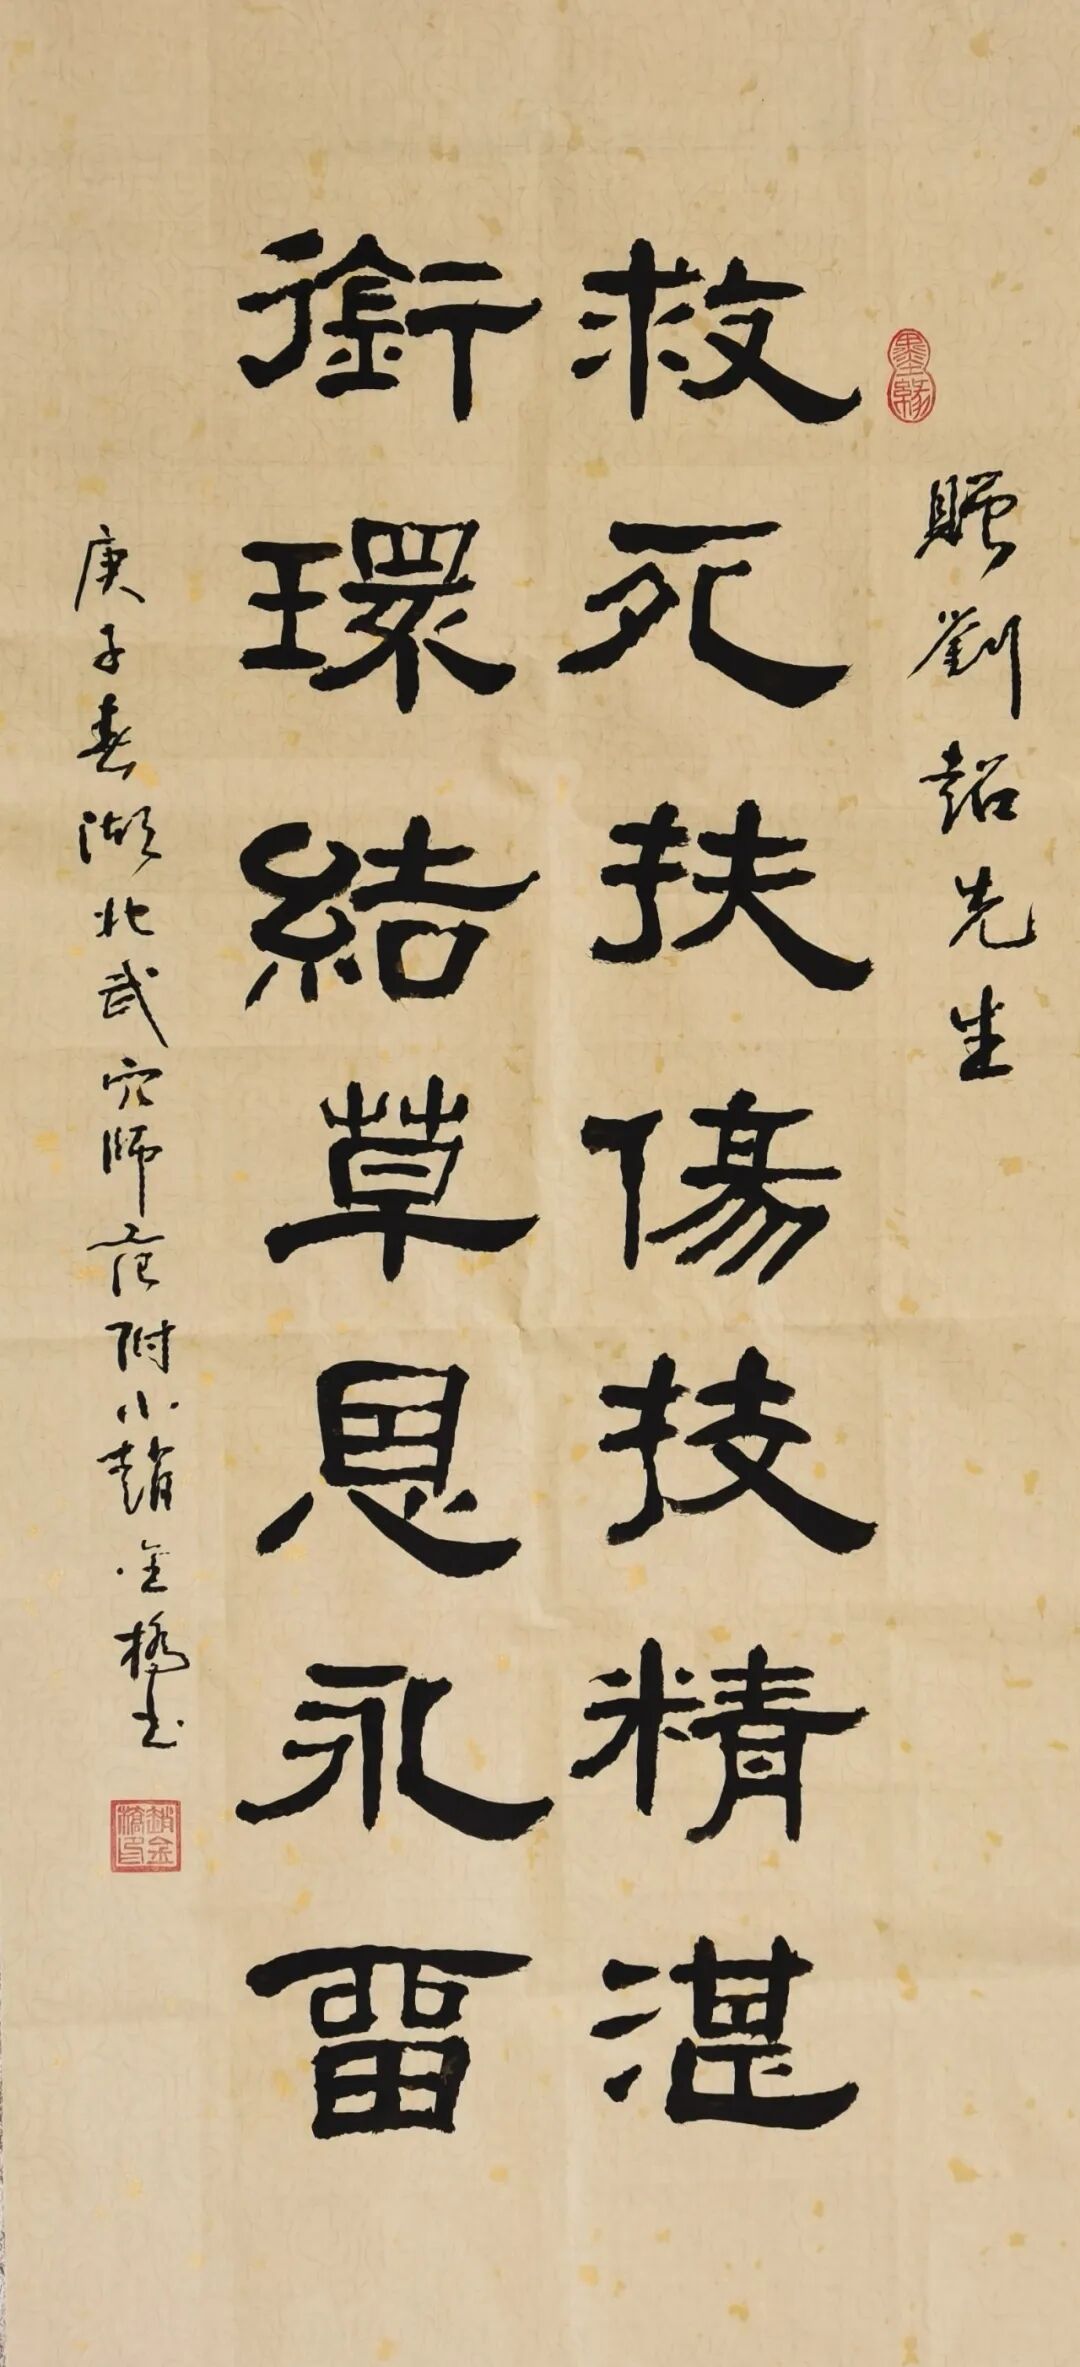 墨緣
贈劉超先生
救死扶傷技精湛
銜環結草恩永留
庚子春湖北武穴師范附小趙金橋书
趙金橋印